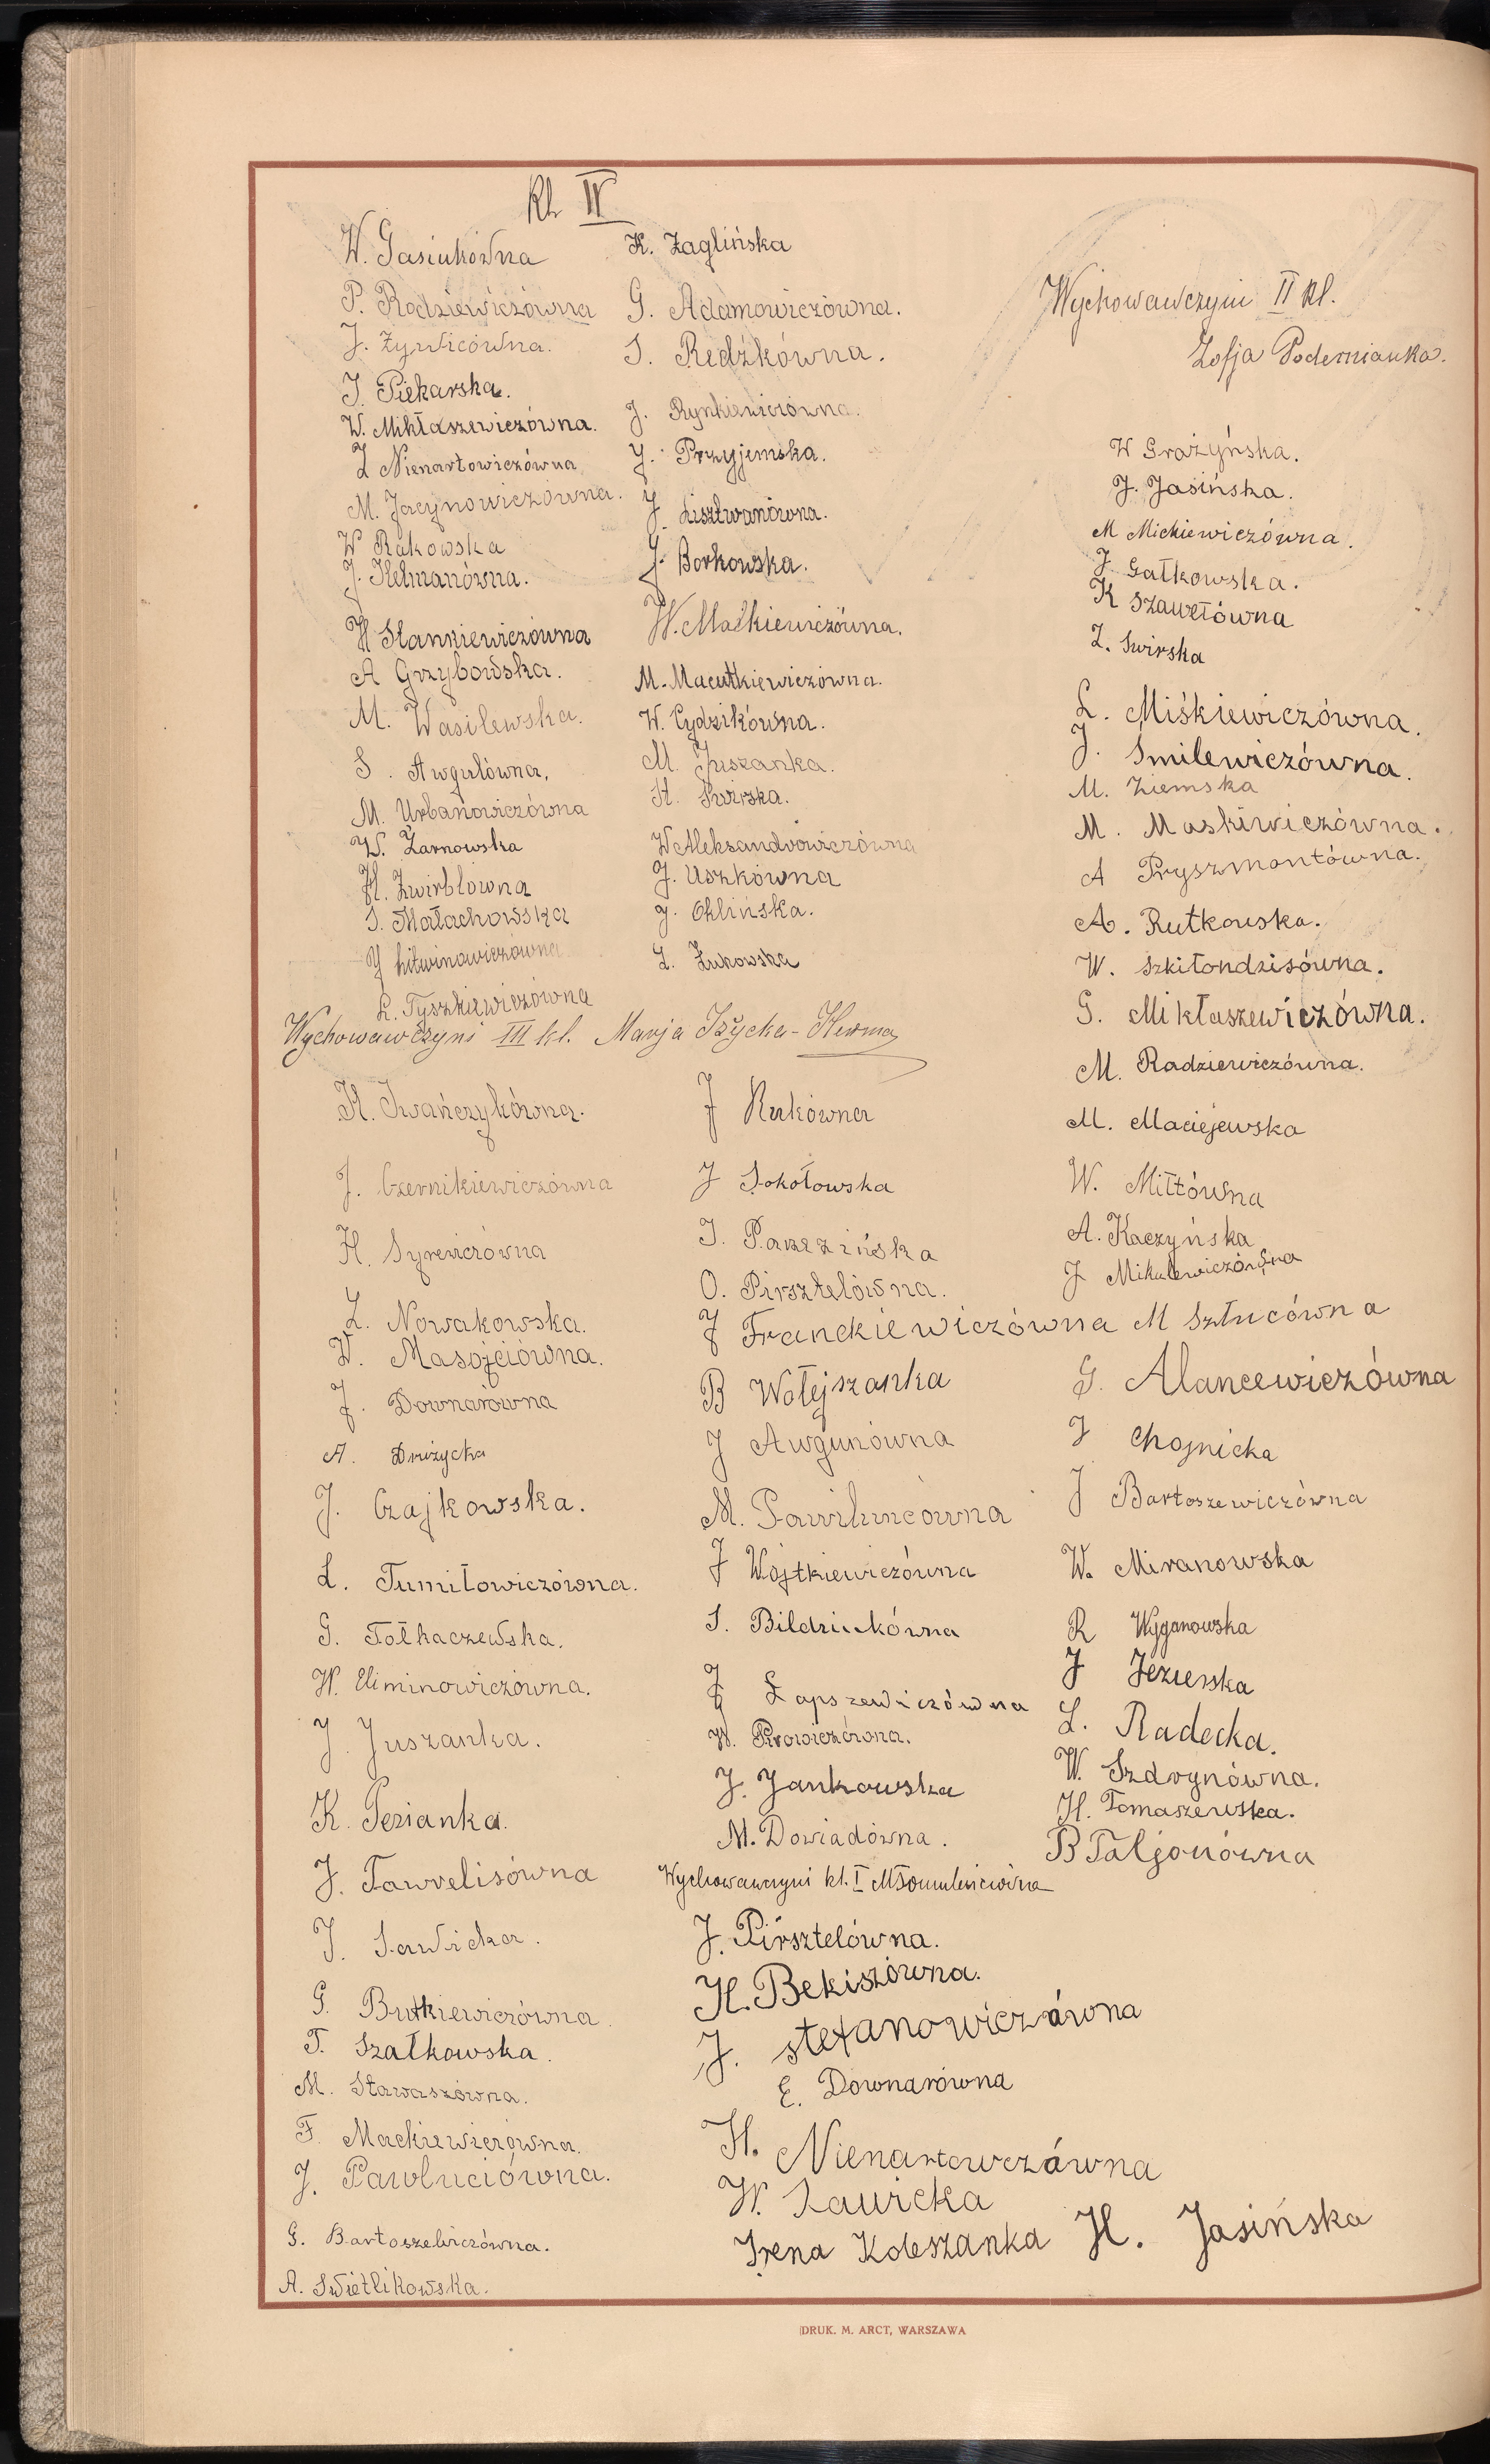 Kl. IV
W. Gasiukówna
P. Rodziewiczówna
J. Żywicówna.
J. Piekarska.
W. Mikłaszewiczówna.
Z Nienartowiczówna
M. Jacynowiczówna.
W Rakowska
J. Helmanówna.
H Stankiewiczówna
A Grzybowska.
M. Wasilewska.
S. Awgulówna,
M. Urbanowiczówna
W. Żarnowska
H. Żwirblówna
S. Małachowska
J Litwinowiczówna
L. Tyszkiewiczówna
K. Żaglińska
G. Adamowiczówna.
S. Redźkówna.
J. Rynkiewiczówna.
J. Przyjemska.
J. Lisztwanówna.
J. Borkowska.
W. Małkiewiczówna.
M. Macutkiewiczówna.
W. Cydzikówna.
M. Juszanka.
H. Świrska.
W Aleksandrowiczówna
J. Uszkówna
J. Ohlińska.
Z. Żukowska
Wychowawczyni III kl. Marja Iżycka-Herma
H. Iwańczykówna.
J. Czernikiewiczówna
H. Syrewiczówna
Z. Nowakowska.
W. Masojciówna.
J. Downarówna
A. Drużycka
J. Czajkowska.
L. Tumiłowiczówna.
G. Tołkaczewska.
W. Eliminowiczówna.
J. Juszanka.
K. Pezianka.
J. Tawrelisówna
J. Sawicka.
G. Butkiewiczówna.
T. Szałkowska.
M. Stawaszówna.
F. Mackiewiczówna.
J. Pawluciówna.
G. Bartoszewiczówna.
A. Świetlikowska.
J Rukówna
J Sokołowska
J. Parczińska
O. Pirsztelówna.
J Franckiewiczówna
B Wołejszanka
J Awgunówna
M. Pawiluncówna
J Wojtkiewiczówna
S. Bildziukówna
J Łapszewiczówna
W. Prowiczówna.
J. Jankowska
M. Dowiadówna.
Wychowawczyni kl. I
J. Pirsztelówna.
H. Bekiszówna.
J. stefanowiczówna
E. Downarówna
H. Nienartowczówna
W. Sawicka
Irena Koleszanka
H. Jasińska
Wychowawczyni II kl.
Zofja Podernianka.
W Grażyńska.
J. Jasińska.
M Mickiewiczówna.
J. Gałkowska.
K Szawełówna
Z. Swirska
L. Miśkiewiczówna.
J. Smilewiczówna.
M. Ziemska
M. Maskiwiczówna.
A Pryszmontówna.
A. Rutkowska.
W. Szkiłondzisówna.
G. Mikłaszewiczówna.
M. Radziewiczówna.
M. Maciejewska
W. Miłtówna
A. Kaczyńska
J Mikulewiczówna
M Sztucówna
G. Alancewiczówna
J Chojnicka
J Bartoszewiczówna
W. Miranowska
R Wyganowska
J Jezierska
L. Radecka.
W. Szdrynówna.
H. Tomaszewska.
B Taljonówna
DRUK. M. ARCT, WARSZAWA